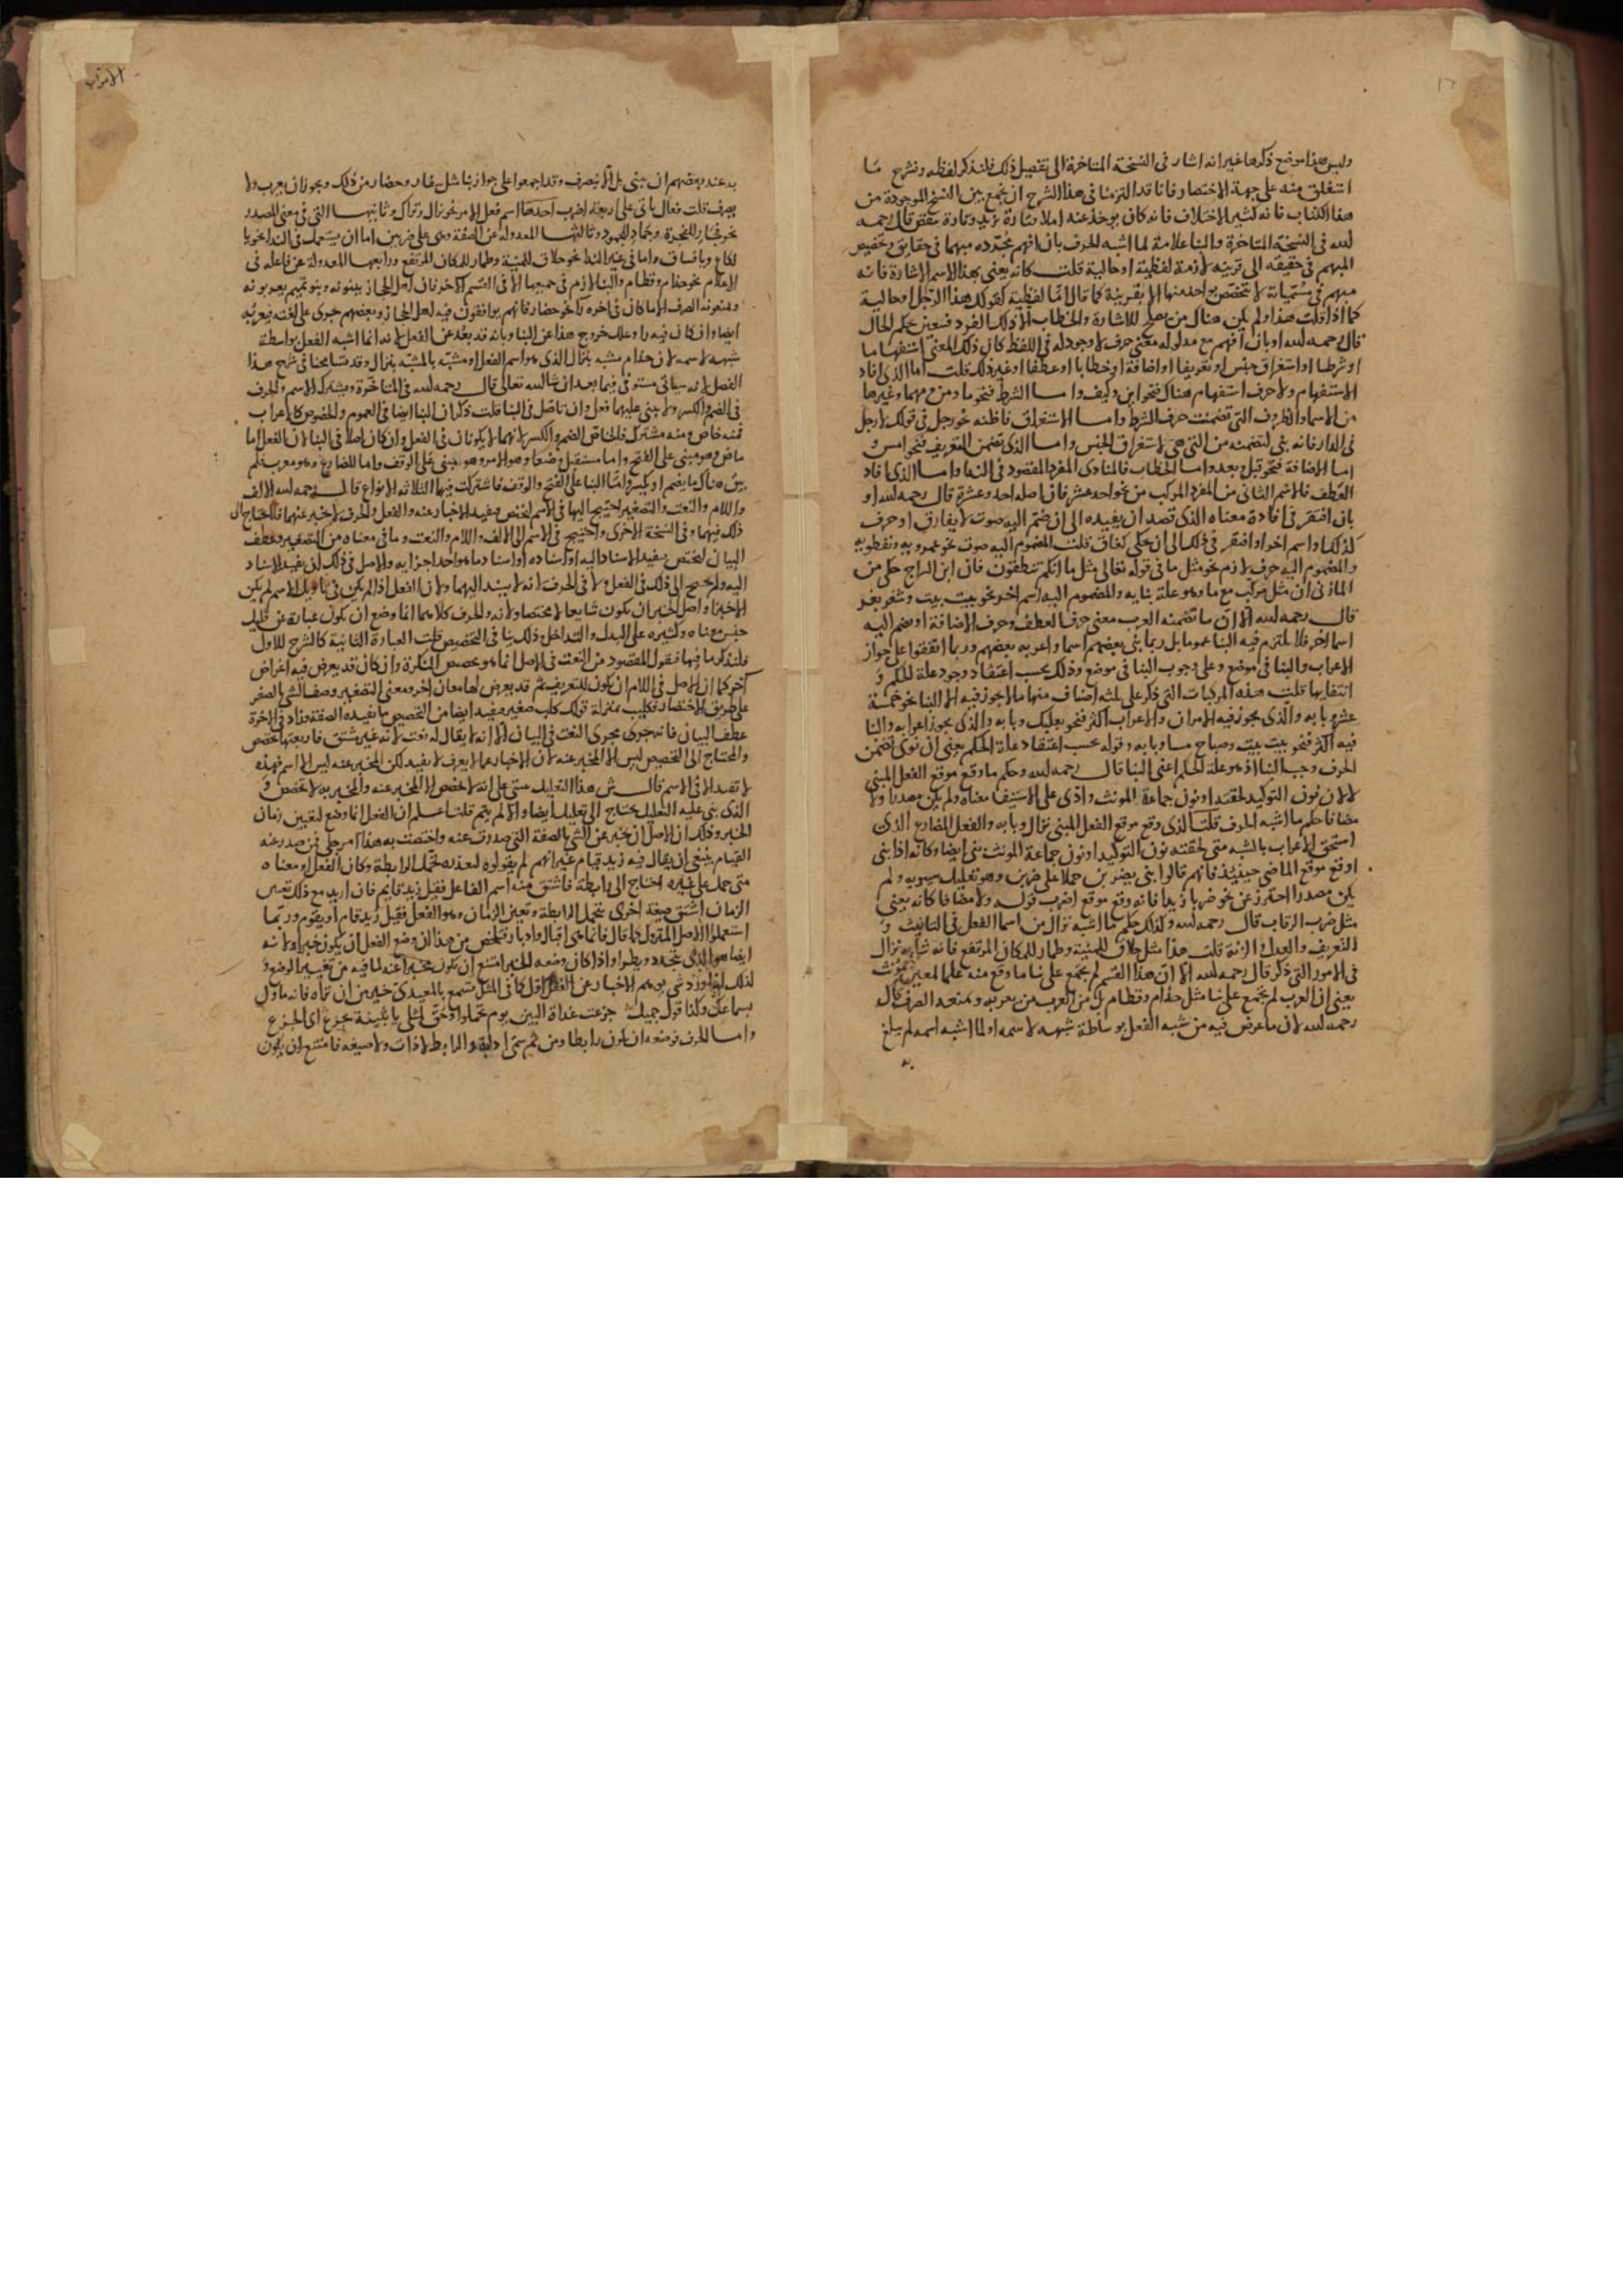 وليس هذا موضع ذكرها غير انه اشار في النسخة المتاخرة الى تفصيل ذلك فلنذكر لفظه ونشرح ما
استغلق منه على جهة الاختصار فانا قد التزمنا في هذا الشرح ان نجمع بين النسخ الموجودة من
هذا الكتاب فانه كثير الاختلاف فانه كان يوخذ عنه املا فتارة يزيد وتارة ينقص قال رحمه
الله في النسخة المتاخرة والبنا علامة لما اشبه الحرف بان افهم بمجرده مبهما في حقايق وتخصيص
المبهم في حقيقه الى قرينه لازمة لفظية او حالية قلت كانه يعني بهذا الاسم الاشارة فانه
مبهم في مسمياته لا يتخصص بواحد منها الا بقرينة كما قال اما لفظية كقولك هذا الرجل او حالية
كما اذا قلت هذا ولم يكن هنال من يصلح للاشارة والخطاب الا ذلك الفرد فتعين بحكم الحال
قال رحمه الله او بان افهم مع مدلوله معنى حرف لا وجود له في اللفظ كان ذلك المعنى استفهاما
او شرطا او استغراق جنس او تعريفا او اضافة او خطابا او عطفا او غير ذلك قلت اما الذي افاد
الاستفهام ولا حرف استفهام هناك فنحو اين وكيف واما الشرط فنحو ما ومن ومهما وغيرها
من الاسما والظروف التي تضمنت حرف الشرط واما الاستغراق فاظنه نحو رجل في قولك لا رجل
في الدار فانه بني لتضمنه من التي هي لاستغراق الجنس واما الذي تضمن التعريف فنحو امس و
اما الاضافة فنحو قبل وبعد واما الخطاب فالمنادى المفرد المقصود في الندا واما الذي افاد
العطف فالاسم الثاني من المفرد المركب من نحو احد عشر فان اصله احد وعشرة قال رحمه الله او
بان افتقر في افادة معناه الذي قصد ان يفيده الى ان ضم اليه صوت لا يفارق او حرف
كذلك او اسم اخر او افتقر في ذلك الى ان حكي كغاق قلت المضموم اليه صوت نحو عمرويه ونفطويه
والمضموم اليه حرف لازم نحو مثل ما في قوله تعالى مثل ما انكم تنطقون فان ابن السراج حكى عن
المازني ان مثل مركب مع ما وهو علة بنايه والمضموم اليه اسم اخر نحو بيت بيت وشغر بغر
قال رحمه الله الا ان ما تضمنه العرب معنى حرف العطف وحرف الاضافة او ضم اليه
اسما اخر فلا يلتزم فيه البنا عموما بل ربما بنى بعضهم اسما واعربه بعضهم وربما اتفقوا على جواز
الاعراب والبنا في موضع وعلى وجوب البنا في موضع وذلك بحسب اعتقاد وجود علة للحكم و
انتفايها قلت هذه المركبات التي ذكر على ثلثه اصناف منها ما لا يجوز فيه الا البنا نحو خمسة
عشر وبابه والذي يجوز فيه الامران والاعراب اكثر فنحو بعلبك وبابه والذي يجوز اعرابه والبنا
فيه اكثر فنحو بيت بيت وصباح مسا وبابه وقوله بحسب اعتقاد علة الحكم يعني ان نوى تضمن
الحرف وجب البنا اذ هو علة للحكم اعني البنا قال رحمه الله وحكم ما وقع موقع الفعل المبني
لا لان نون التوكيد لحقته او نون جماعة المونث وادى على الاستيف معناه ولم يكن مصدرا ولا
مضافا حكم ما اشبه الحرف قلت الذي وقع موقع الفعل المبني نزال وبابه والفعل المضارع الذي
استحق الاعراب بالشبه متى لحقته نون التوكيد او نون جماعة المونث بني ايضا وكانه اذا بني
او وقع موقع الماضي حينيذ فانهم قالوا بني يضربن حملا على ضربن وهو تعليل سيبويه ولم
يكن مصدرا احترز عن نحو ضربا زيدا فانه وقع موقع اضرب قوله ولا مضافا كانه يعني
مثل ضرب الرقاب قال رحمه الله وكذلك حكم ما اشبه نزال من اسما الفعل في التانيث و
التعريف والعدل والزنة قلت هذا مثل حلاق للمنية وطمار للمكان المرتفع فانه شابه نزال
في الامور التي ذكر قال رحمه الله الا ان هذا القسم لم يجمع على بنا ما وقع منه علما لمعين مونث
يعني ان العرب لم تجمع على بنا مثل حذام وقطام بل من العرب من يعربه ويمنعه الصرف قال
رحمه الله لان ما عرض فيه من شبه الفعل بوساطة شبهه لاسمه او لما اشبه اسمه لم يبلغ
به
الاعراب
به عند بعضهم ان يبنى بل الا ينصرف وقد اجمعوا على جواز بنا مثل غار وحضار من ذلك ويجوز ان يعرب ولا
يصرف قلت فعال ياتي على اربعة اضرب احدها اسم فعل الامر نحو نزال وتراك وثانيها التي في معنى المصدر
نحو فجار للفجرة وجماد للجمود وثالثها المعدولة عن الصفة وهي على ضربين اما ان يستعمل في الندا نحو يا
لكاع ويا فساق واما في غير الندا نحو حلاق للمنية وطمار للمكان المرتفع ورابعها المعدولة عن فاعلة في
الاعلام نحو حذام وقطام والبنا لازم في جميعها الا في القسم الاخر فان اهل الحجاز يبنونه وبنو تميم يعربونه
ويمنعونه الصرف الا ما كان في اخره را نحو حضار فانهم يوافقون فيه اهل الحجاز وبعضهم جرى على لغته فيعربه
ايضا وان كان فيه را وعلل خروج هذا عن البنا وبانه قد بعد عن الفعل لانه انما اشبه الفعل بواسطة
شبهه لاسمه لان حذام مشبه بنزال الذي هو اسم الفعل او مشبه بالمشبه بنزال وقد تسامحنا في شرح هذا
الفصل لانه سياتي مستوفى فيما بعد ان شا الله تعالى قال رحمه الله في المتاخرة ويشترك الاسم والحرف
في الضم والكسر ولا يبنى عليهما فعل وان تاصل في البنا قلت ذكر ان البنا ايضا في العموم والخصوص كالاعراب
فمنه خاص ومنه مشترك فالخاص الضم والكسر لانهما لا يكونان في الفعل وان كان اصلا في البنا لان الفعل اما
ماض وهو مبني على الفتح واما مستقبل وضعا وهو الامر وهو مبني على الوقف واما للمضارع وهو معرب فلم
يبق هناك ما يضم او يكسر واما البنا على الفتح والوقف فاشتركت فيها الثلاثه الانواع قال رحمه الله الالف
واللام والنعت والتصغير احتيج اليها في الاسم لتخصص مفيد الاخبار عنه والفعل والحرف لا خبر عنهما فلا يحتاج الى
ذلك فيهما وفي النسخة الاخرى واحتيج في الاسم الى الالف واللام والنعت وما في معناه من التصغير وعطف
البيان لتختص مفيد الاسناد اليه او اسناده او اسناد ما هو احد اجزايه والاصل في ذلك لمن يفيد الاسناد
اليه ولم يحتج الى ذلك في الفعل ولا في الحرف لانه لا يسند اليهما ولان الفعل اذا لم يكن في تاويل الاسم لم يكن
الا خبرا واصل الخبر ان يكون شايعا لا مختصا ولانه والحرف كلاهما انما وضع ان يكون عبارة عن قليل
جنس معناه وكثيره على البدل والتداخل وذلك ينافي التخصيص قلت العبارة الثانية كالشرح للاول
فلنذكر ما فيها فنقول المقصود من النعت في الاصل انما هو تخصيص النكرة وان كان قد يعرض فيه اغراض
اخر كما ان الاصل في اللام ان يكون للتعريف ثم قد يعرض لها معان اخر ومعنى التصغير وصف الشي بالصغر
على طريق الاختصار فكليب بمنزلة قولك كلب صغير مفيد ايضا من التخصيص ما تفيده الصفة وزاد في الاخرة
عطف البيان فانه جرى مجرى النعت في البيان الا انه لا يقال له نعت لانه غير مشتق فاربعتها تخصص
والمحتاج الى التخصيص ليس الا المخبر عنه لان الاخبار عما لا يعرف لا يفيد لكن المخبر عنه ليس الا اسم فهذه
لا تفيد الا في الاسم قال ش هذا التعليل مبني على انه لا يخصص الا المخبر عنه والمخبر به لا يخصص و
الذي بني عليه التعليل يحتاج الى تعليل ايضا والا لم يتم قلت اعلم ان الفعل انما وضع لتعيين زمان
الخبر وذلك ان الاصل ان يخبر عن الشي بالصفة التي صدرت عنه واختصت به هذا امر جلي فمن صدر عنه
القيام ينبغي ان يقال فيه زيد قيام غير انهم لم يقولوه لبعده تحمل الرابطة وكان الفعل او معناه
متى حمل على غيره احتاج الى رابطة فاشتق منه اسم الفاعل فقيل زيد قايم فان اريد مع ذلك تعيين
الزمان اشتق صيغة اخرى تتحمل الرابطة وتعين الزمان وهو الفعل فقيل زيد قام او يقوم وربما
استعملوا الاصل المقرول كما قال فانما هي اقبال وادبار فتلخص من هذا ان وضع الفعل ان يكون خبرا ولانه
ايضا هو الذي يتجدد ويطرا واذا كان وضعه للخبر امتنع ان يكون مخبرا عنه لما فيه من تغيير الوضع و
لذلك اذا ورد شي يوهم الاخبار عن الفعل اول كما في المثل تسمع بالمعيدي خير من ان تراه فانه ماول
بسماعك وكذا قول جميل جزعت غداة البين يوم تحملوا وحق لمثلي يا بثينة يجزع اي الجزع
واما الحرف فوضعه ان يكون رابطا ومن ثم سمي اداة والرابط لا ذات ولا صيغه فامتنع ان يكون